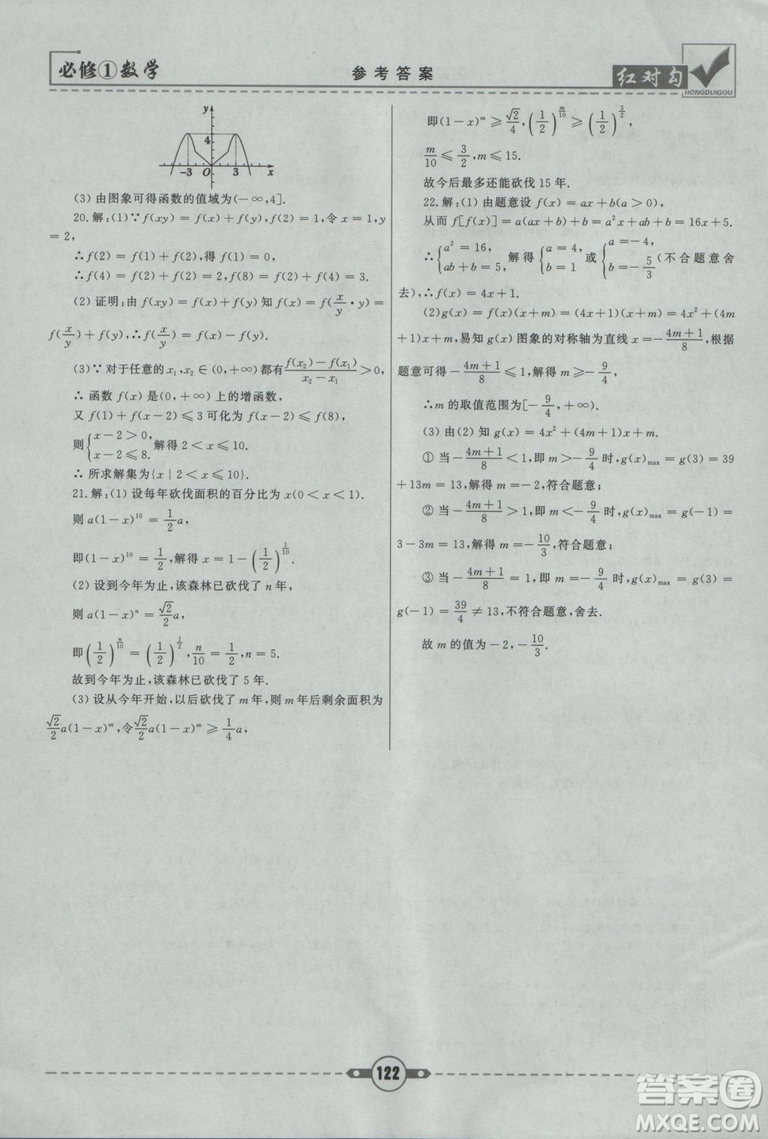 必修①数学
参考答案
红对勾
HONGDUIGOU
y
4
−3 O 3 x
(3) 由图象可得函数的值域为(−∞,4].
20.解:(1)∵f(xy)=f(x)+f(y),f(2)=1,令x=1,y
=2,
∴f(2)=f(1)+f(2),得f(1)=0,
∴f(4)=f(2)+f(2)=2,f(8)=f(2)+f(4)=3.
(2) 证明:由f(xy)=f(x)+f(y)知f(x)=f(x/y·y)=
f(x/y)+f(y),∴f(x/y)=f(x)−f(y).
(3)∵对于任意的x₁,x₂∈(0,+∞)都有(f(x₂)−f(x₁))/(x₂−x₁)>0,
∴函数f(x)是(0,+∞)上的增函数,
又f(1)+f(x−2)≤3可化为f(x−2)≤f(8),
则{x−2>0, x−2≤8. 解得2<x≤10.
∴所求解集为{x|2<x≤10}.
21.解:(1) 设每年砍伐面积的百分比为x(0<x<1).
则a(1−x)¹⁰=1/2a,
即(1−x)¹⁰=1/2,解得x=1−(1/2)^(1/10).
(2) 设到今年为止,该森林已砍伐了n年,
则a(1−x)ⁿ=√2/2a,
即(1/2)^(n/10)=(1/2)^(1/2),n/10=1/2,n=5.
故到今年为止,该森林已砍伐了5年.
(3) 设从今年开始,以后砍伐了m年,则m年后剩余面积为
√2/2a(1−x)^m,令√2/2a(1−x)^m≥1/4a,
即(1−x)^m≥√2/4,(1/2)^(m/10)≥(1/2)^(3/2),
m/10≤3/2,m≤15.
故今后最多还能砍伐15年.
22.解:(1) 由题意设f(x)=ax+b(a>0),
从而f[f(x)]=a(ax+b)+b=a²x+ab+b=16x+5,
∴{a²=16, ab+b=5, 解得{a=4, b=1 或{a=−4, b=−5/3 (不合题意舍
去),∴f(x)=4x+1.
(2)g(x)=f(x)(x+m)=(4x+1)(x+m)=4x²+(4m
+1)x+m,易知g(x)图象的对称轴为直线x=−(4m+1)/8,根据
题意可得−(4m+1)/8≤1,解得m≥−9/4,
∴m的取值范围为[−9/4,+∞).
(3) 由(2)知g(x)=4x²+(4m+1)x+m,
① 当−(4m+1)/8<1,即m>−9/4时,g(x)max=g(3)=39
+13m=13,解得m=−2,符合题意;
② 当−(4m+1)/8>1,即m<−9/4时,g(x)max=g(−1)=
3−3m=13,解得m=−10/3,符合题意;
③ 当−(4m+1)/8=1,即m=−9/4时,g(x)max=g(3)=
g(−1)=39/4≠13,不符合题意,舍去.
故m的值为−2,−10/3.
122
答案圈
MXQE.COM